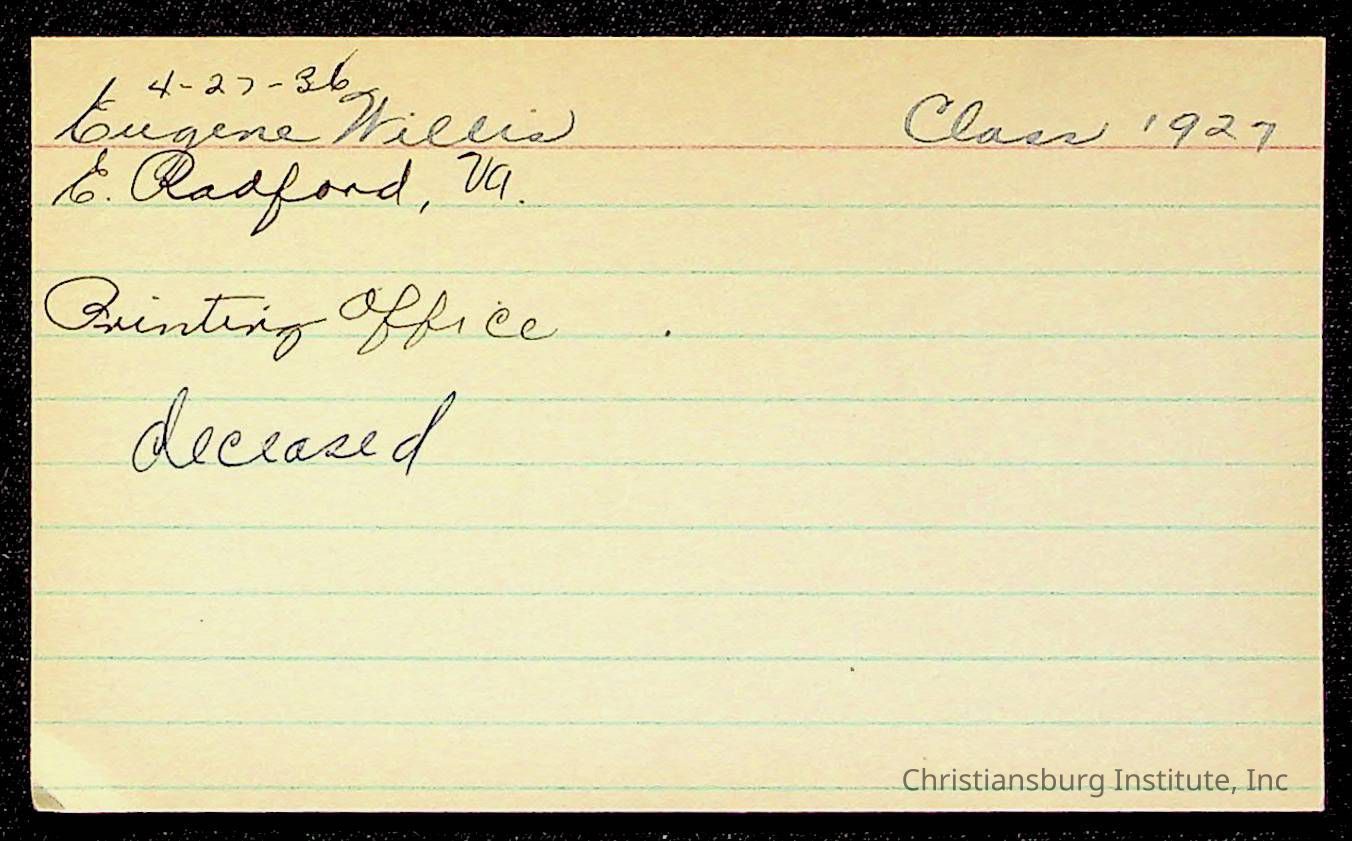 4-27-36
Eugene Willis Class 1927
E. Radford, Va.
Printing Office
deceased
Christiansburg Institute, Inc